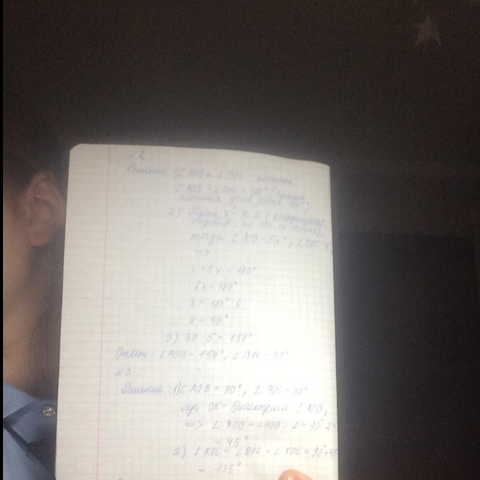 №2
Решение: 1) ∠AOB и ∠BOC - смежные
∠AOB + ∠BOC = 180° (сумма
смежных углов равна 180°)
2) Пусть x°
тогда ∠AOB - 5x°, ∠BOC - x
=>
x+5x=180°
6x=180°
x=180°:6
x=30°
3) 30·5=150°
Ответ: ∠AOB - 150°, ∠BOC - 30°
№3
Решение: 1) ∠AOB = 90°, ∠BOC = 90°
луч OK - биссектриса ∠AOB,
=> ∠KOB = ∠AOB : 2 = 90°:2=
= 45°
2) ∠KOC = ∠BOC + ∠KOB = 90°+45
= 135°